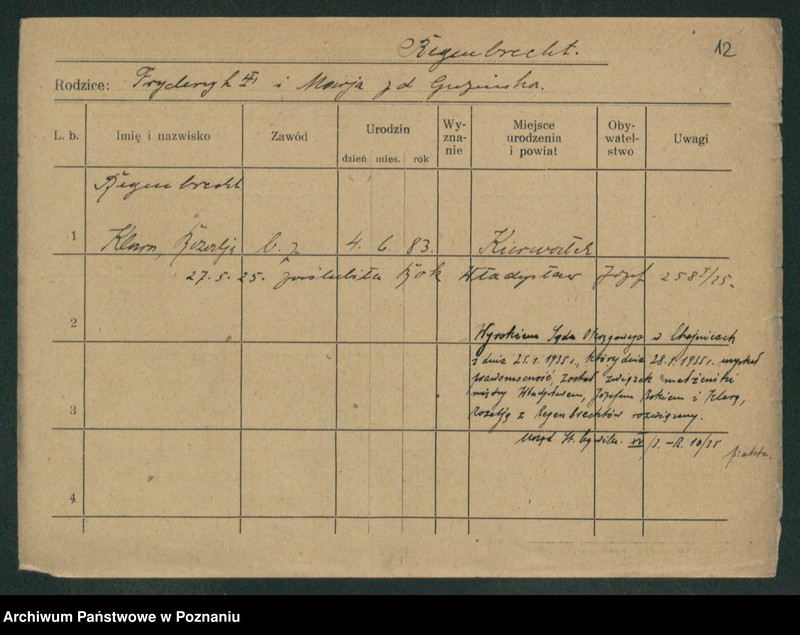 Regenbrecht.
12
Rodzice: Fryderyk i Marja z d Guzinska.
L. b. Imię i nazwisko Zawód Urodzin dzień mies. rok Wyznanie Miejsce urodzenia i powiat Obywatelstwo Uwagi
Regenbrecht
1 Klara, Rozalja b. z 4. 6. 83.
27. 5. 25. zaślubiła Rok Władysław Józef 258 /25.
2
Wyrokiem Sądu Okręgowego w Chojnicach
z dnia 25.1.1935 r., który dnia 28.1.1935 r. uzyskał
prawomocność, został związek małżeński
między Władysławem, Józefem Rokiem i Klarą,
3
Rozalją z Regenbrechtów rozwiązany.
Urząd St. Cywiln. 10/35
4
Archiwum Państwowe w Poznaniu